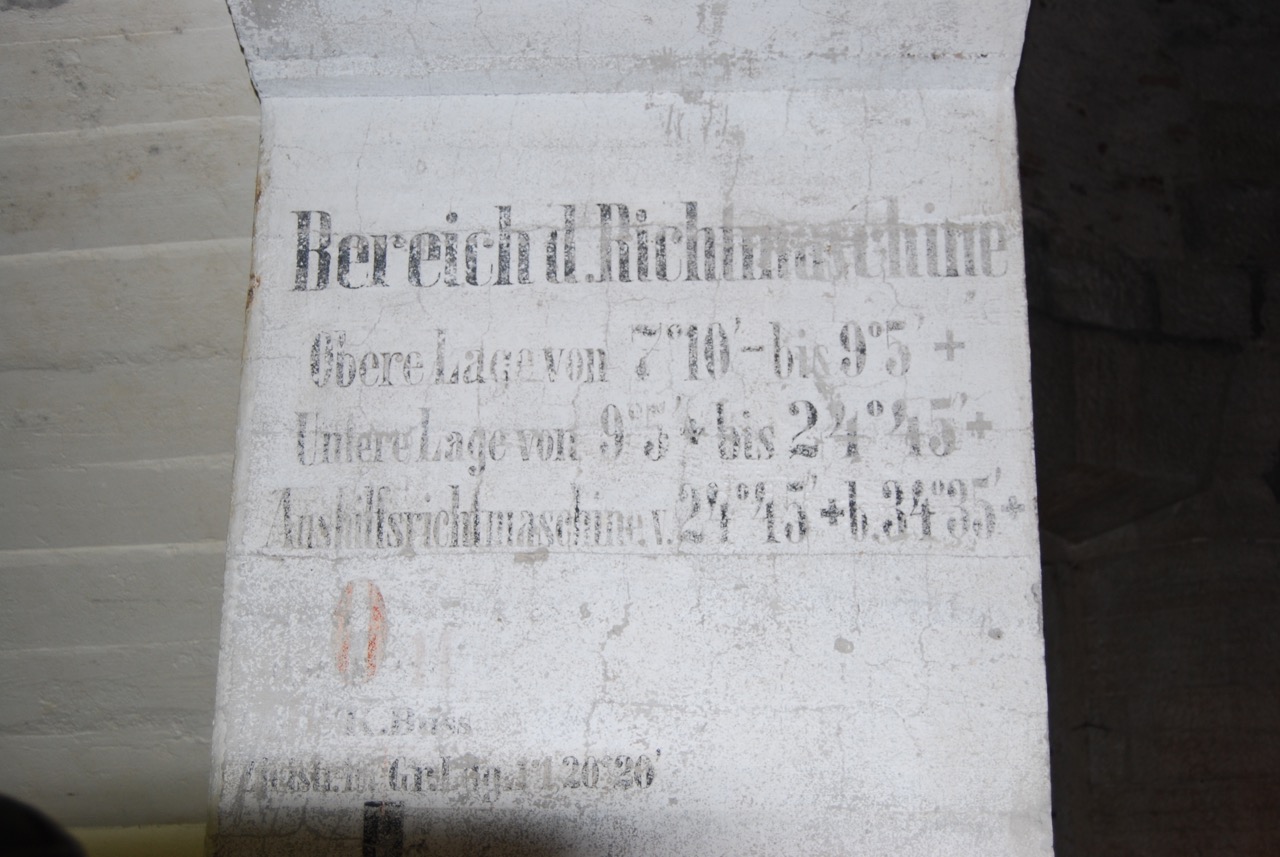 Bereich d. Richtmaschine
Obere Lage von 7°10'- bis 9°5' +
Untere Lage von 9°5'+ bis 24°45'+
Aushilfsrichtmaschine. v. 24°45'+ b. 34°35'+
0
K. Buss
Gr. 20°20'